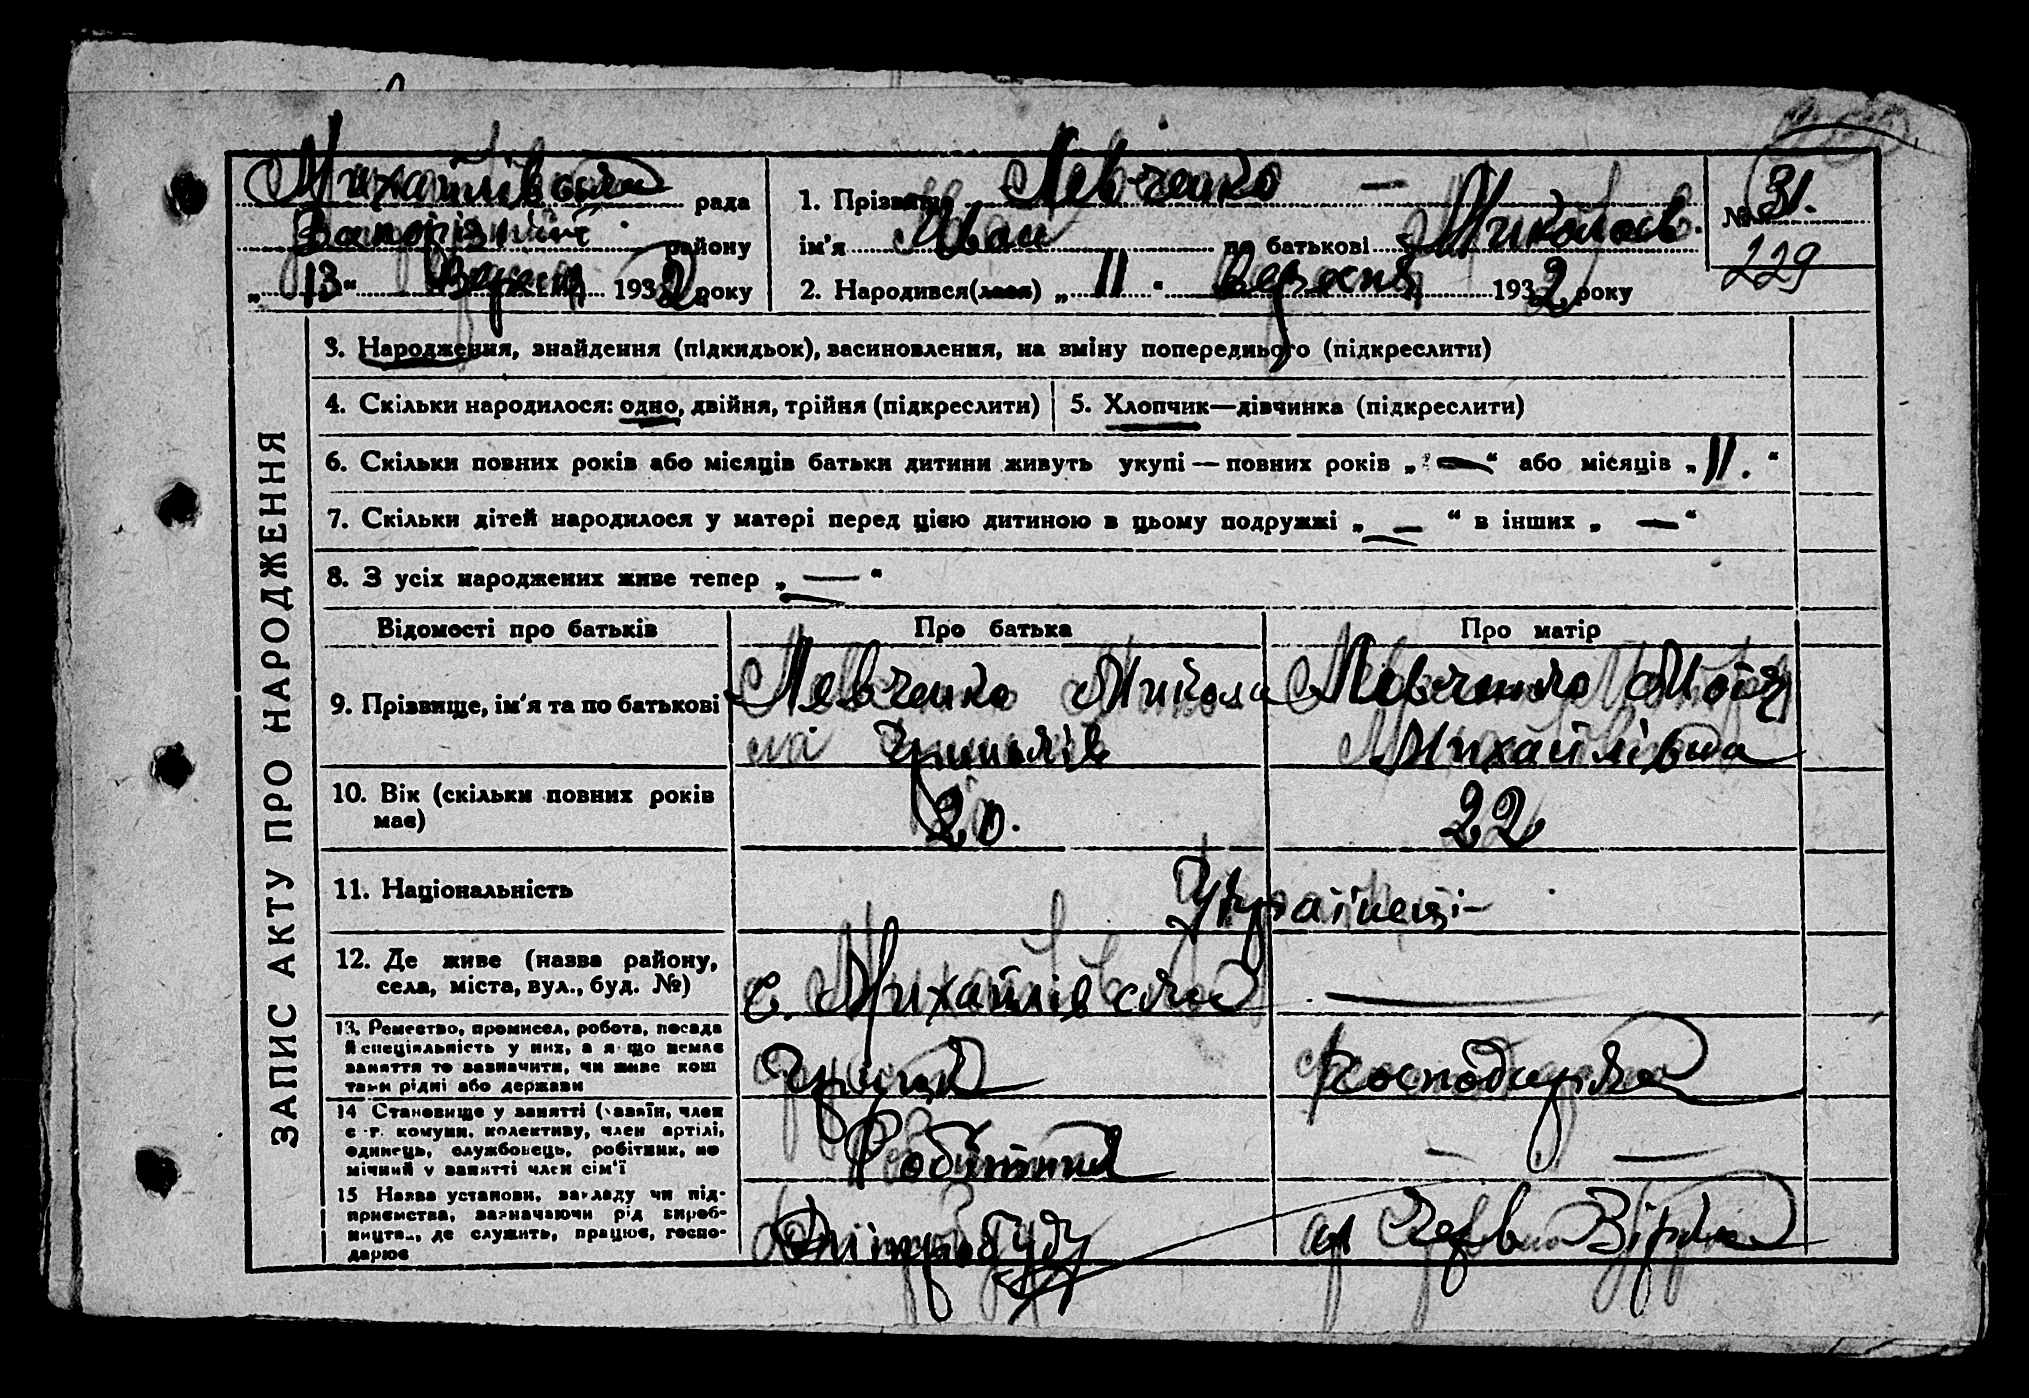 Михайлівська рада
Запорізький району
„13“ Вересня 1932 року
1. Прізвище Левченко —
ім'я Іван по батькові Миколаєв.
2. Народився(лася) „11“ Вересня 1932 року
№ 31.
229
ЗАПИС АКТУ ПРО НАРОДЖЕННЯ
3. Народження, знайдення (підкидьок), васиновлення, на зміну попереднього (підкреслити)
4. Скільки народилося: одно, двійня, трійня (підкреслити)
5. Хлопчик—дівчинка (підкреслити)
6. Скільки повних років або місяців батьки дитини живуть укупі — повних років „—“ або місяців „11.“
7. Скільки дітей народилося у матері перед цією дитиною в цьому подружжі „—“ в інших „—“
8. З усіх народжених живе тепер „—“
Відомості про батьків
Про батька
Про матір
9. Прізвище, ім'я та по батькові
Левченко Микола
Левченко
Михайлівна
10. Вік (скільки повних років
має)
20.
22
11. Національність
Українці
12. Де живе (назва району,
села, міста, вул., буд. №)
с. Михайлівка
—
13. Ремество, промисел, робота, посада
й спеціяльність у них, а якщо немає
заняття то зазначити, чи живе кош
тами рідні або держави
господарка
14 Становище у занятті (хазяїн, член
с.-г. комуни, колективу, член артілі,
одинець, службовець, робітник, по
мічний у занятті член сім'ї
Робітник
— —
15 Назва установи, закладу чи під-
приємства, зазначаючи рід вироб-
ництва, де служить, працює, госпо-
дарює
Дніпробуд